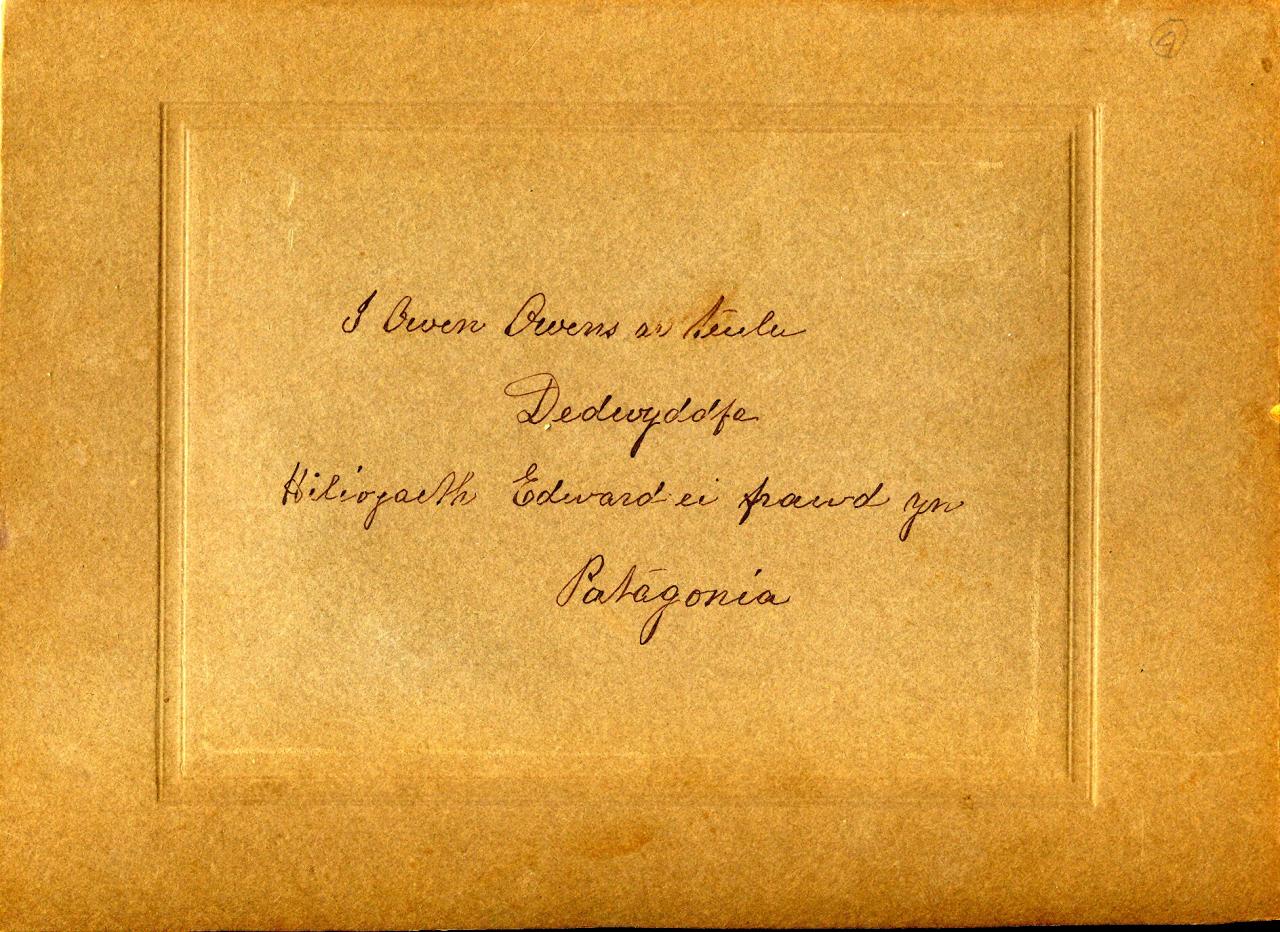 4
I Owen Owens ar teulu
Dedwyddfa
Hiliogaeth Edward ei frawd yn
Patagonia